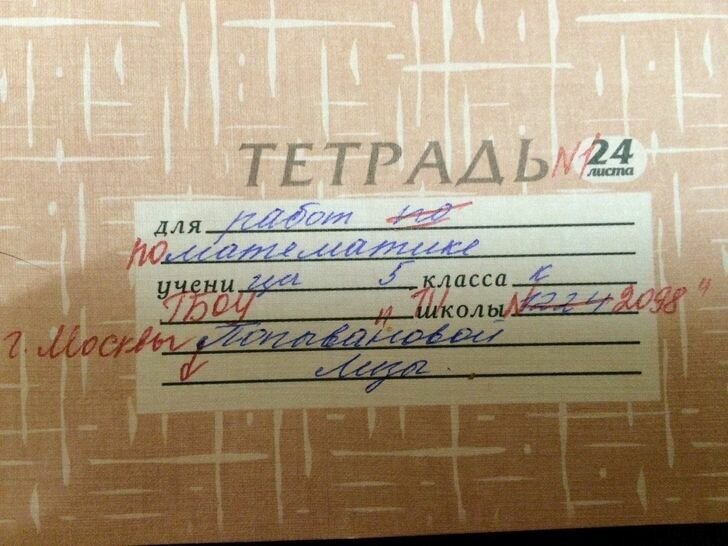 ТЕТРАДЬ №1 24 листа
для работ по
по математике
учени ца 5 класса к
ГБОУ "Школы № 2098"
г. Москвы Попывановой
Лизы.